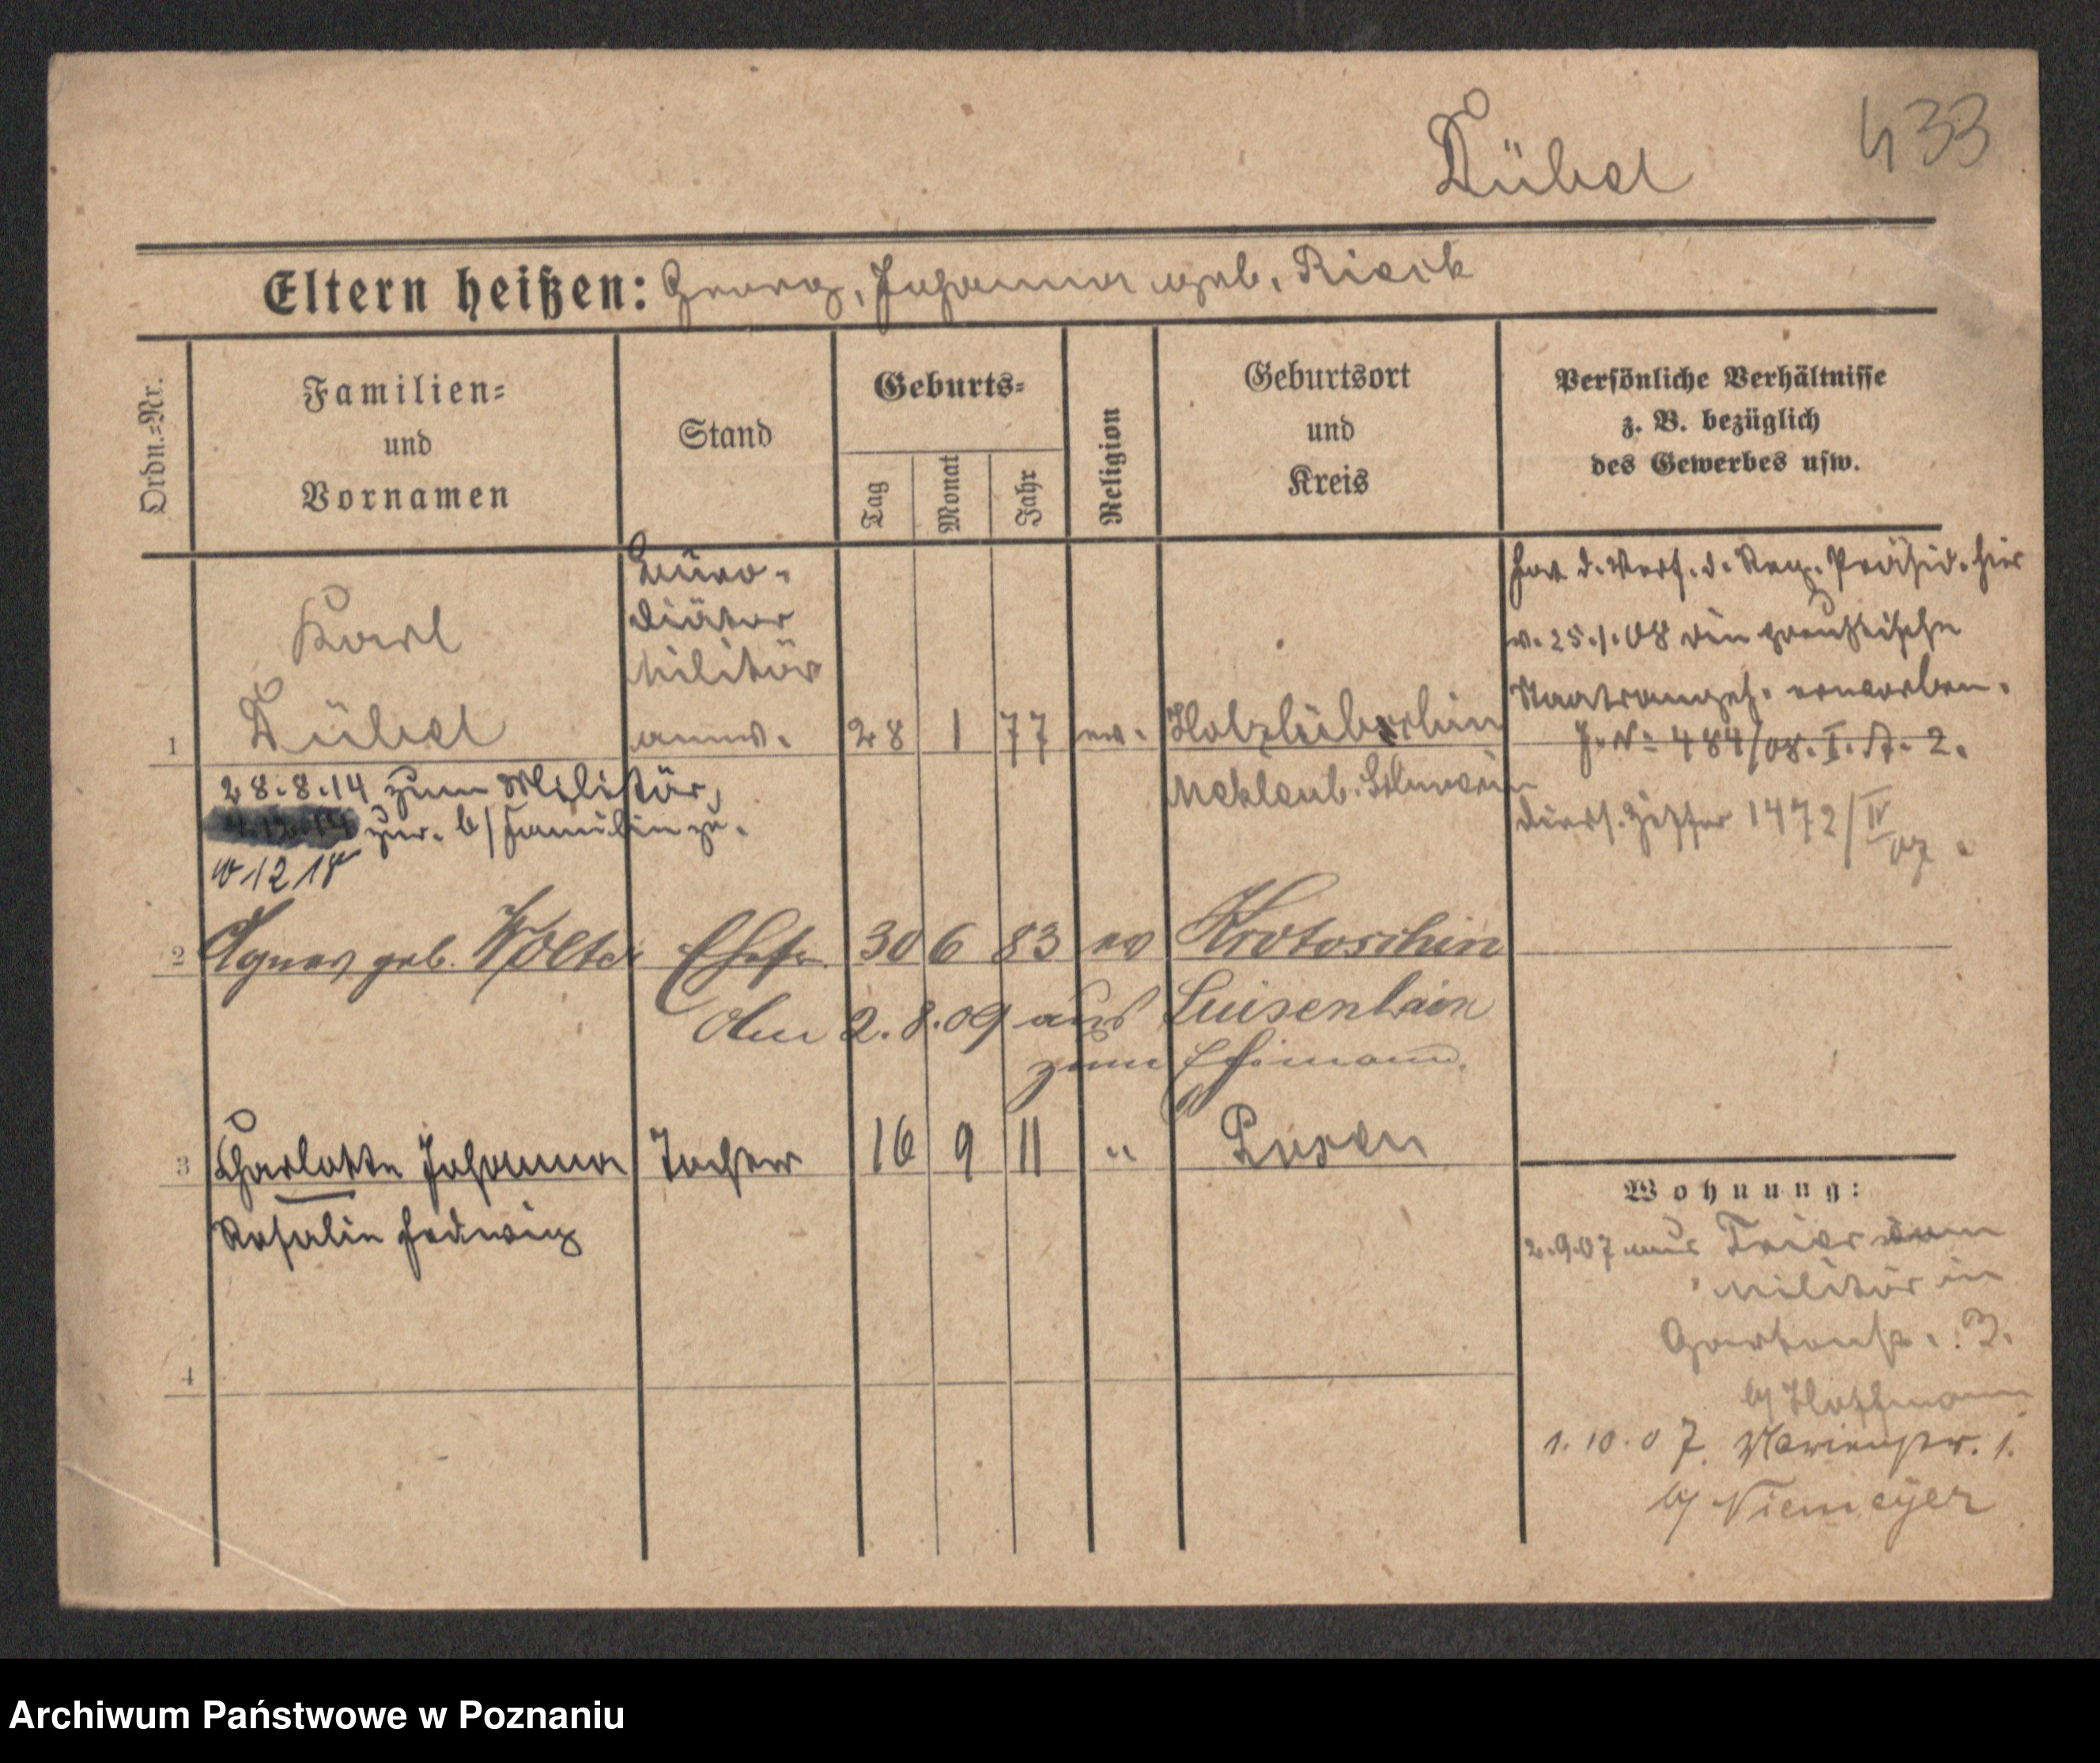 433
Dübel
Eltern heißen: Georg, Johanna geb. Rieck
Ordn.=Nr.
Familien=
und
Vornamen
Stand
Geburts=
Tag
Monat
Jahr
Religion
Geburtsort
und
Kreis
Persönliche Verhältnisse
z. B. bezüglich
des Gewerbes usw.
Karl
Büro-
diätar
Militär
1 Dübel anw. 28 1 77 ev. Holzlübchin
Meklenb. Schwerin
hat d. Verf. d. Reg. Präsid. hier
v. 25.1.08 die preußische
Staatsangeh. erworben.
J. N: 484/08. I. A. 2.
diess. Ziffer 1472/IV 07.
28.8.14 zum Militär,
zur. b/ Familie zu.
12 18
2 Agnes geb. Wolter Ehefr. 30 6 83 ev Krotoschin
Am 2.8.09 aus Luisenhain
zum Ehemann.
3 Charlotte Johanna Tochter 16 9 11 " Posen
Rosalie Hedwig
4
Wohnung:
2.9.07 aus Trier vom
Militär in
Gartenstr. 3.
b/ Hoffmann
1.10.07. Marienstr. 1.
b/ Niemeyer
Archiwum Państwowe w Poznaniu